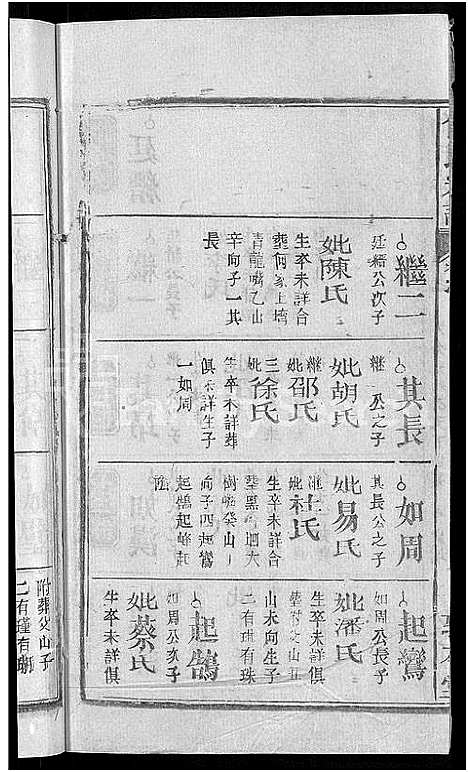 繼二
廷縉公次子
妣陳氏
生卒未詳合
塟何家上塆
青龍嘴乙山
辛向子一其
長
其長
繼二公之子
妣胡氏
繼妣邵氏
三妣徐氏
生卒未詳葬
俱未詳生子
一如周
如周
其長公之子
妣易氏
繼妣杜氏
生卒未詳合
樹嘴癸山丁
向子四起鸞
起鵠起峰起
起鸞
如周公長子
妣潘氏
生卒未詳俱
塟附父山丑
山未向生子
二有琪有珠
起鵠
如周公次子
妣蔡氏
生卒未詳俱
附葬父山子
二有瑾有瑚